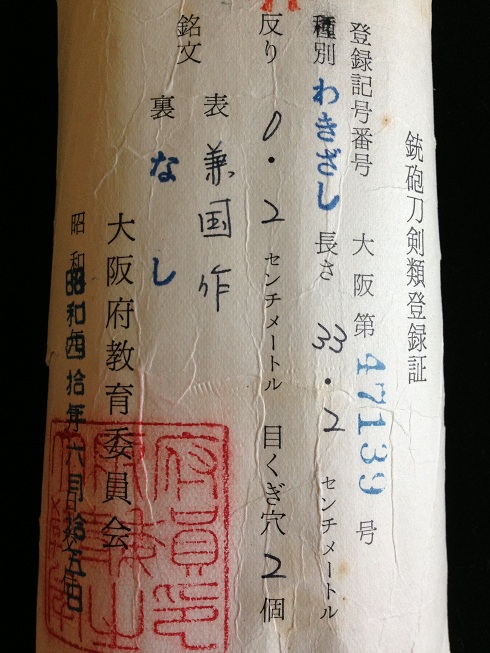 銃砲刀剣類登録証
登録記号番号 大阪第47139号
種別 わきざし 長さ 33.2 センチメートル
反り 0.2 センチメートル 目くぎ穴 2個
銘文 表 兼国作
裏 なし
大阪府教育委員会
昭和四拾年六月拾五日